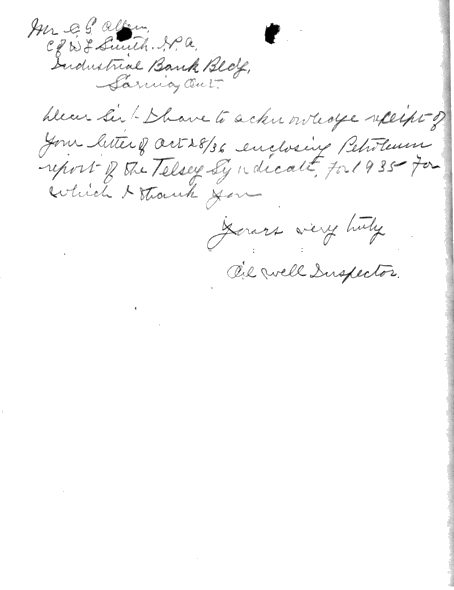 Mr C G Allen,
C/o W L Smith. I.P.A.
Industrial Bank Bldg,
Sarnia, Ont.
Dear Sir:- I have to acknowledge receipt of
your letter of Oct 28/36 enclosing Petroleum
report of the Telsey Syndicate, for 1935 for
which I thank you
Yours very truly
Oil well Inspector.